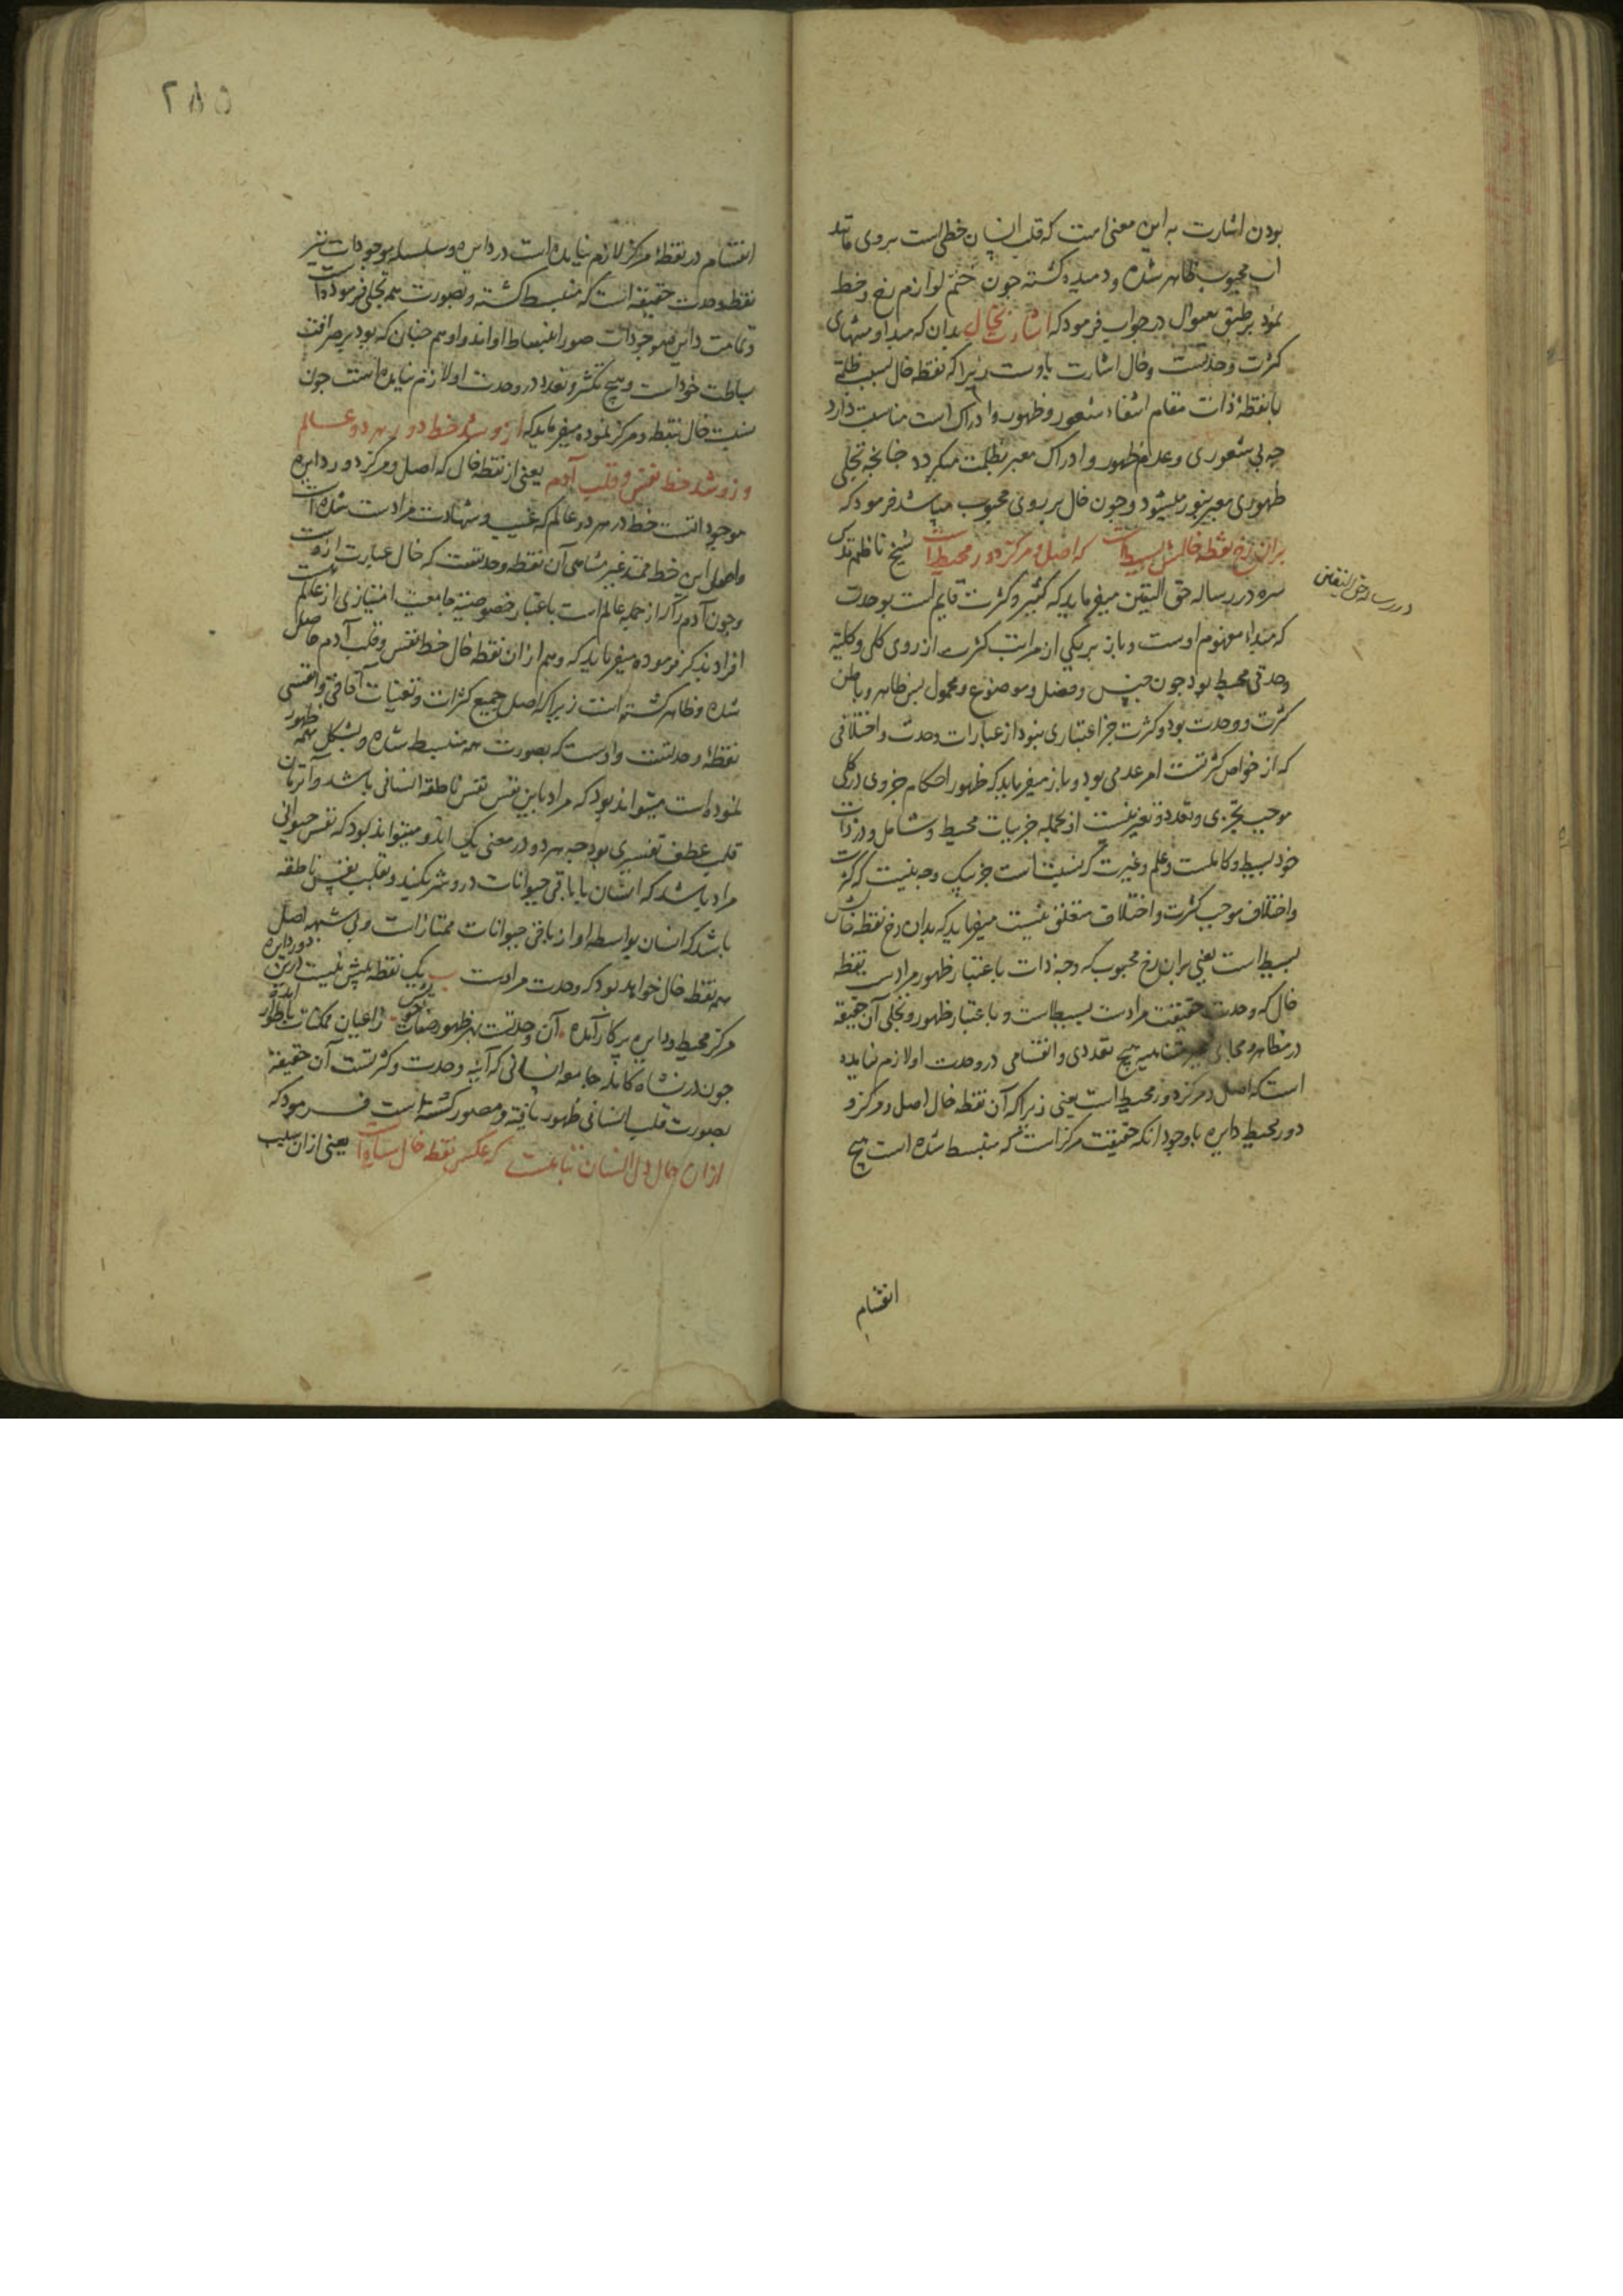 بودن اشارت به این معنی است که قلب انسان خطی است بر روی مانند
آب محبوب ظاهر شده و دمیده گشته چون ختم لوازم رخ و خط
نمود بر طبق سوال در جواب فرمود که اشارت بخال بدان که مبدا و منتهای
کثرت وحدتست و خال اشارت باوست زیرا که نقطه خال بسبب ظلمتی
با نقطهٔ ذات مقام انتفاء شعور و ظهور و ادراک است مناسبت دارد
چه بی شعوری و عدم ظهور و ادراک معبر بظلمت میگردد چنانچه تجلی
ظهوری معبر بنور میشود و چون خال بر روی محبوب میباشد فرمود که
بران رخ نقطه خالش بسیط است که اصل و مرکز دور محیط است شیخ ناظم قدس
سره در رساله حق الیقین میفرماید که کثیر و کثرت قایم است بوحدت
در رساله حق الیقین
که مبداء مفهوم اوست و باز بر یکی از مراتب کثرت از روی کلی و کلیة
وحدتی محیط بود چون جنس و فصل و موضوع و محمول پس ظاهر و باطن
کثرت وحدت بود و کثرت جز اعتباری نبود از عبارات وحدت و اختلافی
که از خواص کثرتست امر عدمی بود و باز میفرماید که ظهور احکام جزوی در کلی
موجب تجزی و تعدد و تغیر نیست از جمله جزییات محیط و شامل و در ذات
خود بسیط و کاملست و علم و غیرت نسبتست جز یک وجه نیست که کثرت
و اختلاف موجب کثرت و اختلاف متعلق نیست میفرماید که بدان رخ نقطه خالش
بسیط است یعنی بران رخ محبوب که وجه ذات باعتبار ظهور مرادست نقطه
خال که وحدت حقیقت مرادست بسیط است و باعتبار ظهور و تجلی آن حقیقة
در مظاهر و مجالی غیر متناهیه هیچ تعددی و انقسامی در وحدت او لازم نیامده
است که اصل و مرکز دور محیط است یعنی زیرا که آن نقطه خال اصل و مرکز و
دور محیط دایره با وجود انکه حقیقت مرکز است که منبسط شده است هیچ
انقسام
۲۸۵
انقسام در نقطهٔ مرکز لازم نیامده است در دایره و سلسله موجودات نیز
نقطه وحدت حقیقه است که منبسط گشته و بصورت همه تجلی فرموده است
و تمامت دایره موجودات صور انبساط او اند و او هم چنان که بود بر صرافت
بساطت خود است و هیچ تکثر و تعدد در وحدت او لازم نیامده است چون
نسبت خال بنقطه و مرکز نموده میفرماید که ازو شد خط دور هر دو عالم
وزو شد خط نفس و قلب آدم یعنی از نقطه خال که اصل و مرکز دور دایره
موجوداتست خط دور هر دو عالم که غیب و شهادت مرادست شده است
و اصل این خط ممتد غیر متناهی آن نقطه وحدتست که خال عبارت ازوست
و چون آدم را که از جمله عالم است باعتبار خصوصیة جامعیت امتیازی از عالم هست
افراد بذکر فرموده میفرماید که و هم ازان نقطه خال خط نفس و قلب آدم حاصل
شده و ظاهر گشته است زیرا که اصل جمیع کثرات و تعینات آفاقی و انفسی
نقطهٔ وحدتست و اوست که بصورت همه منبسط شده و بشکل همه ظهور
نموده است میتواند بود که مراد باین نفس نفس ناطقه انسانی باشد و آن زمان
قلب عطف تفسیری بود چه هر دو در معنی یک اند و میتواند بود که نفس حیوانی
مراد باشد که انسان با باقی حیوانات درو شریکند و قلب نفس ناطقه
باشد که انسان بواسطه او از باقی حیوانات ممتاز است و بی شبهه اصل
همه نقطه خال خواهد بود که وحدت مرادست یک نقطه بیش نیست درین دور دایره
مرکز محیط و دایره پرکار آمده آن وحدتست بهر ظهور صفات خویش از اعیان ممکنات باطوار آمده
چون در نشاه کامله جامعه انسانی که آینه وحدت و کثرتست آن حقیقة
بصورت قلب انسانی ظهور یافته و مصور گشته است فرمود که
ازان حال دل انسان تباهست که عکس نقطه خال سیاه است یعنی ازان سبب